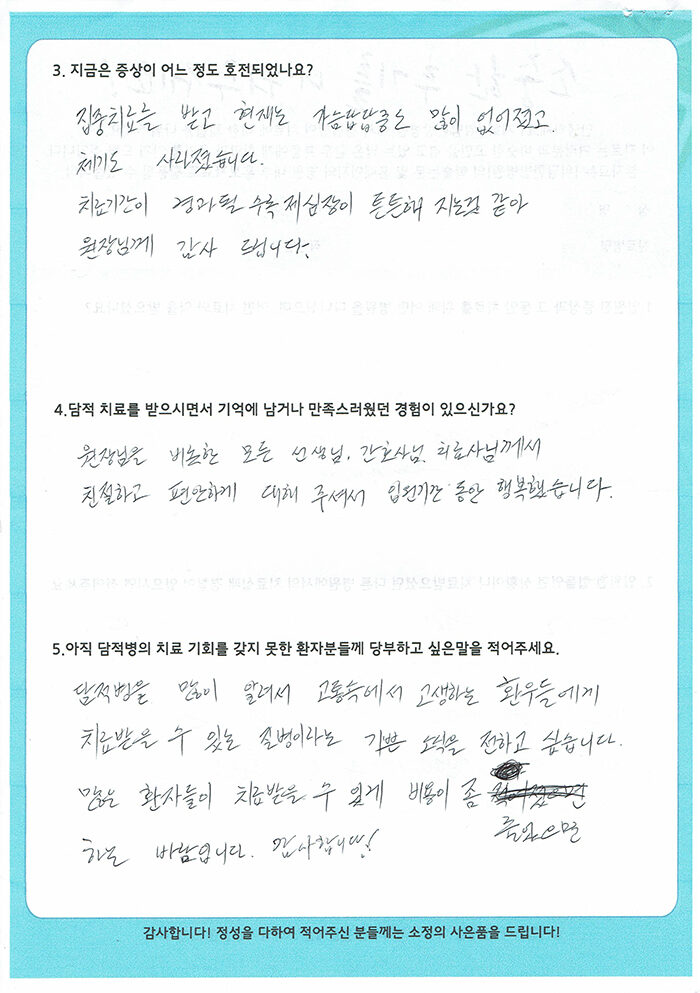 3. 지금은 증상이 어느 정도 호전되었나요?
집중치료를 받고 현재는 가슴답답증도 많이 없어졌고
체기도 사라졌습니다.
치료기간이 경과될 수록 제심장이 튼튼해 지는것 같아
원장님께 감사 드립니다.
4.담적 치료를 받으시면서 기억에 남거나 만족스러웠던 경험이 있으신가요?
원장님을 비롯한 모든 선생님, 간호사님, 치료사님께서
친절하고 편안하게 대해 주셔서 입원기간 동안 행복했습니다.
5.아직 담적병의 치료 기회를 갖지 못한 환자분들께 당부하고 싶은말을 적어주세요.
담적병을 많이 알려서 고통속에서 고생하는 환우들에게
치료받을 수 있는 질병이라는 기쁜 소식을 전하고 싶습니다.
많은 환자들이 치료받을 수 있게 비용이 좀
줄었으면
하는 바람입니다. 감사합니다!
감사합니다! 정성을 다하여 적어주신 분들께는 소정의 사은품을 드립니다!